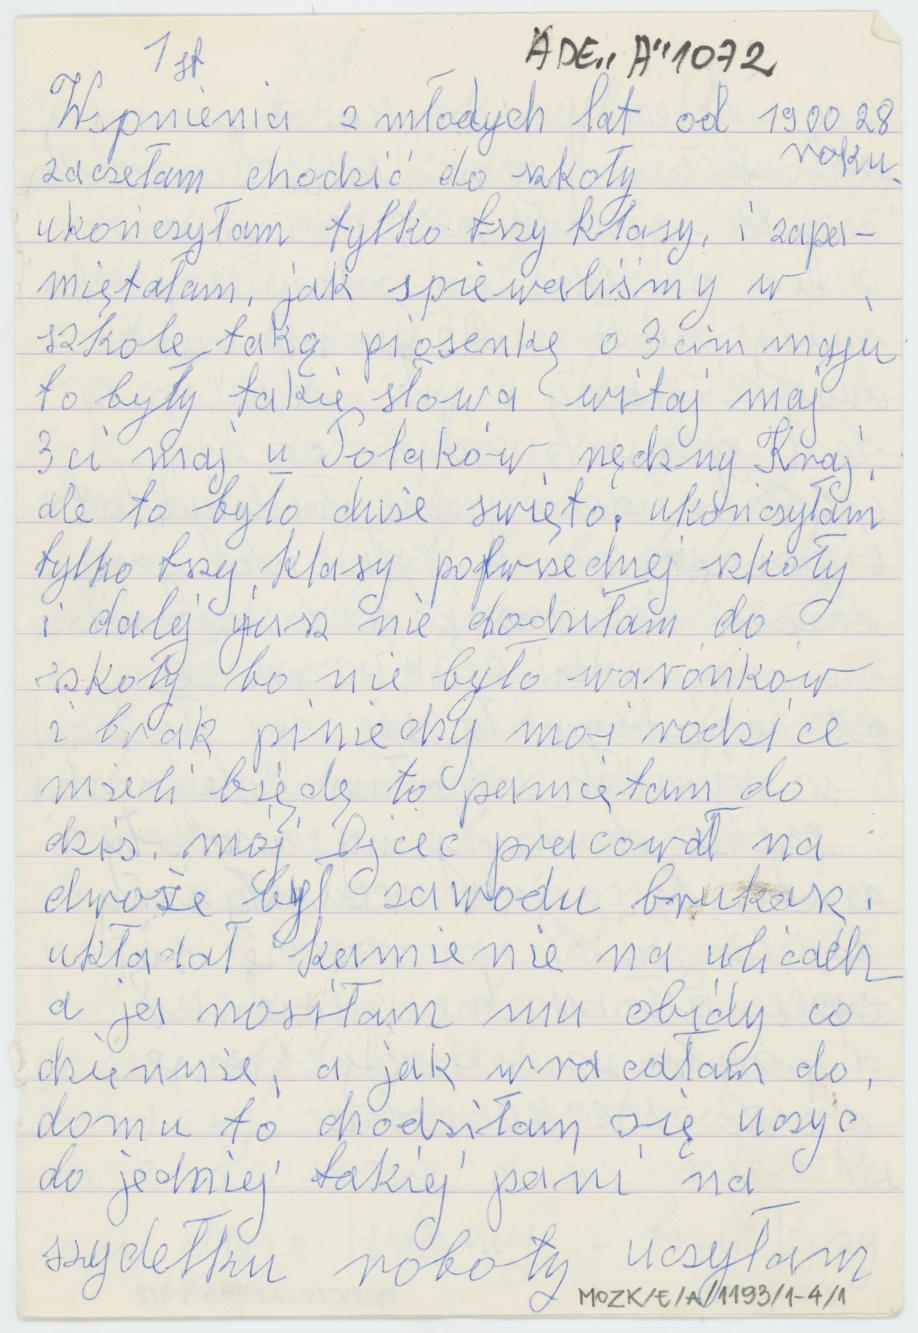 1 st
ADE„A"1072
Wspnienia z młodych lat od 1900 28
roku.
zaczełam chodzić do szkoły
ukończyłam tylko trzy klasy, i zapa-
miętałam, jak spiewaliśmy w
szkole taką piosenkę o 3 cim maju
to były takie słowa witaj maj
3 ci maj u Polaków nędzny Kraj,
ale to było duże swięto, ukończyłam
tylko trzy klasy powrzednej szkoły
i dalej jusz nie chodziłam do
szkoły bo nie było warónków
i brak piniedzy moi rodzice
mieli biędę to pamiętam do
dziś. mój Ojcec pracował na
drože był zawodu brukasz.
układał kamienie na ulicach
a ja nosiłam mu obidy co
dziennie, a jak wracałam do,
domu to chodziłam się uczyć
do jedniej takiej pani na
szydełku roboty uczyłam
MOZK/E/A/1193/1-4/1